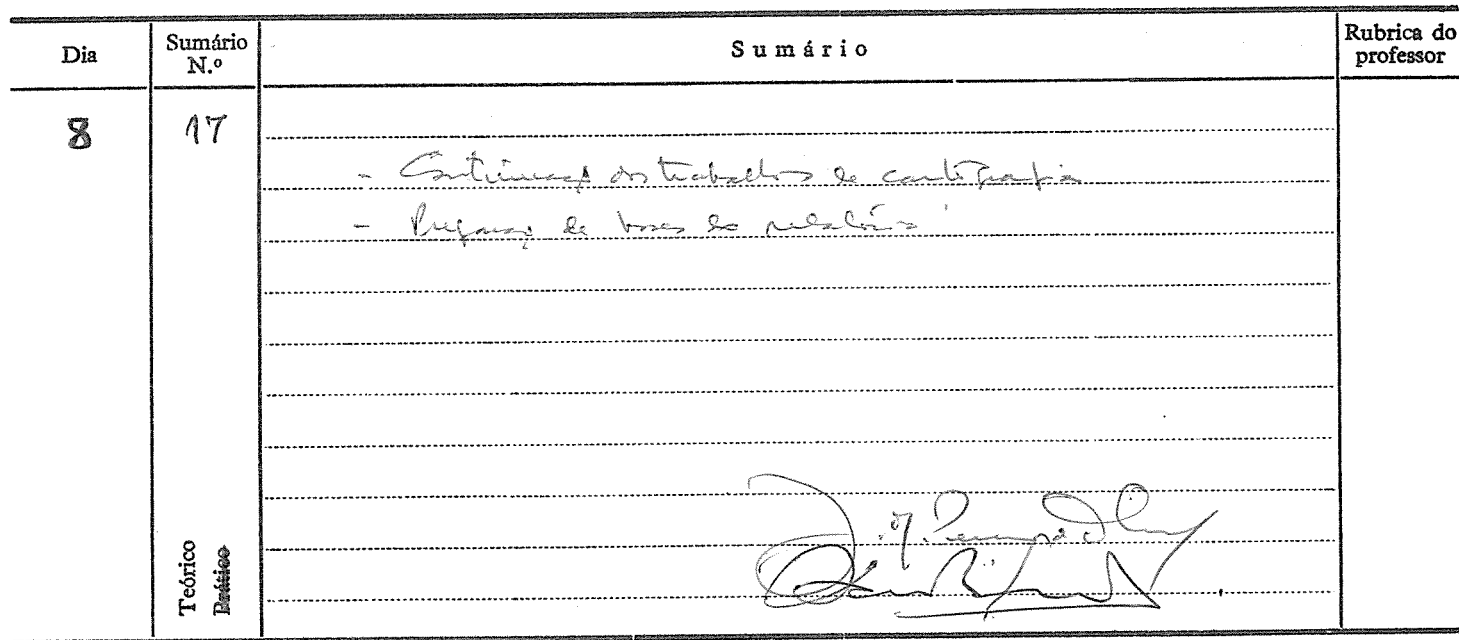 Dia
Sumário N.º
Sumário
Rubrica do professor
8
17
- Continuação dos trabalhos de cartografia
- Preparação de bases do relatório
Teórico
Prático